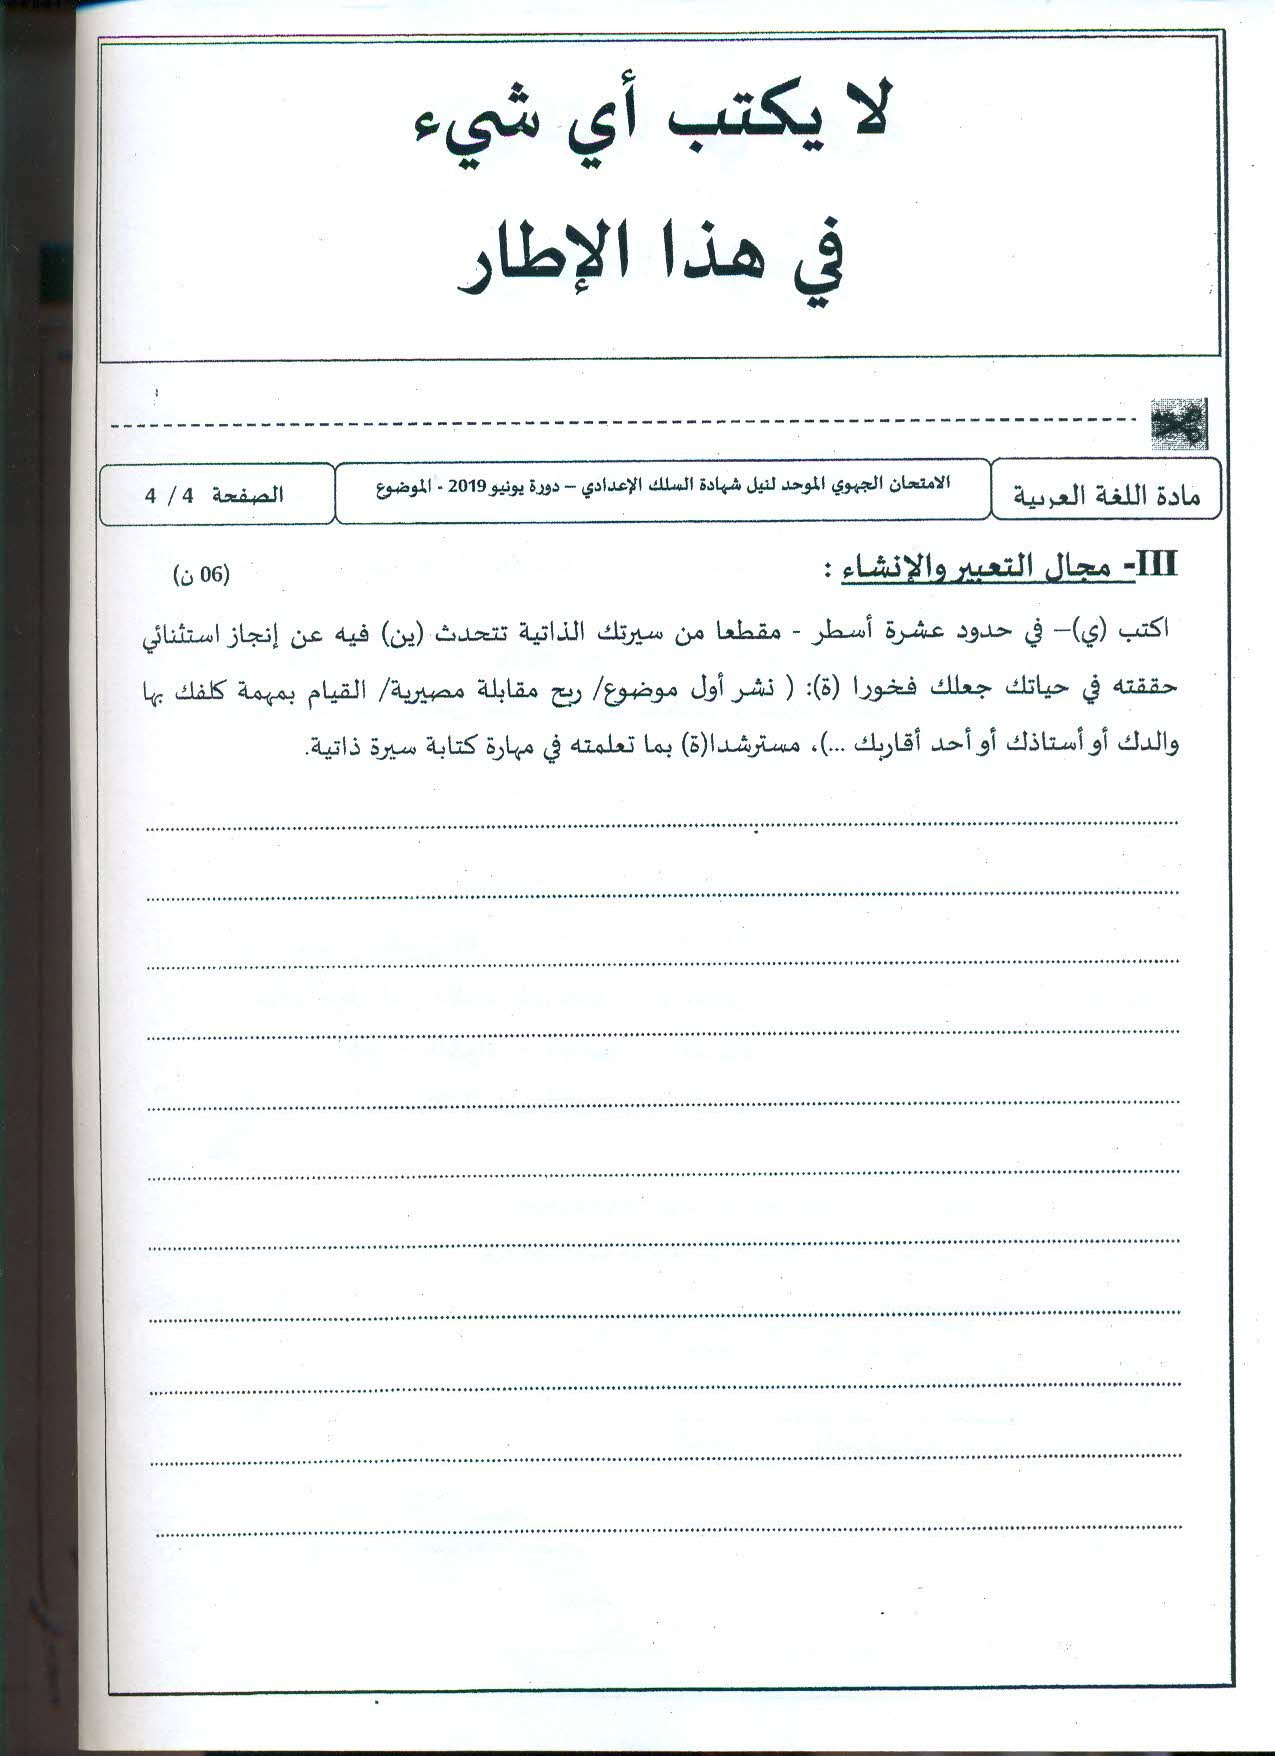 لا يكتب أي شيء
في هذا الإطار
مادة اللغة العربية
الامتحان الجهوي الموحد لنيل شهادة السلك الإعدادي – دورة يونيو 2019 - الموضوع
الصفحة 4 / 4
III- مجال التعبير والإنشاء : (06 ن)
اكتب (ي)– في حدود عشرة أسطر - مقطعا من سيرتك الذاتية تتحدث (ين) فيه عن إنجاز استثنائي
حققته في حياتك جعلك فخورا (ة): ( نشر أول موضوع/ ربح مقابلة مصيرية/ القيام بمهمة كلفك بها
والدك أو أستاذك أو أحد أقاربك ...)، مسترشدا(ة) بما تعلمته في مهارة كتابة سيرة ذاتية.